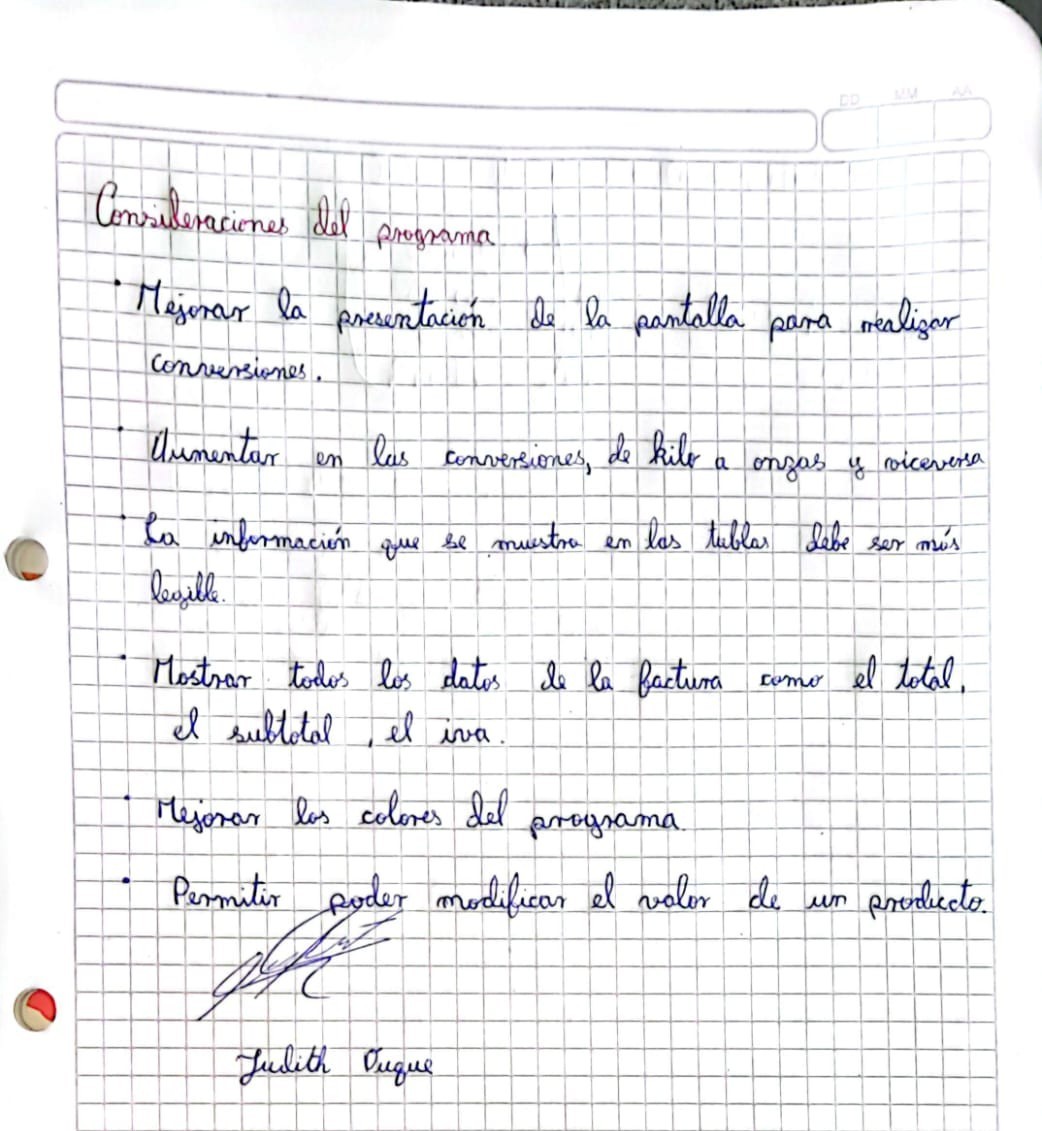 DD MM AA
Consideraciones del programa
· Mejorar la presentación de la pantalla para realizar
conversiones.
· Aumentar en las conversiones, de kilo a onzas y viceversa
· La información que se muestra en las tablas debe ser más
legible.
· Mostrar todos los datos de la factura como el total,
el subtotal, el iva.
· Mejorar los colores del programa.
· Permitir poder modificar el valor de un producto.
Judith Duque